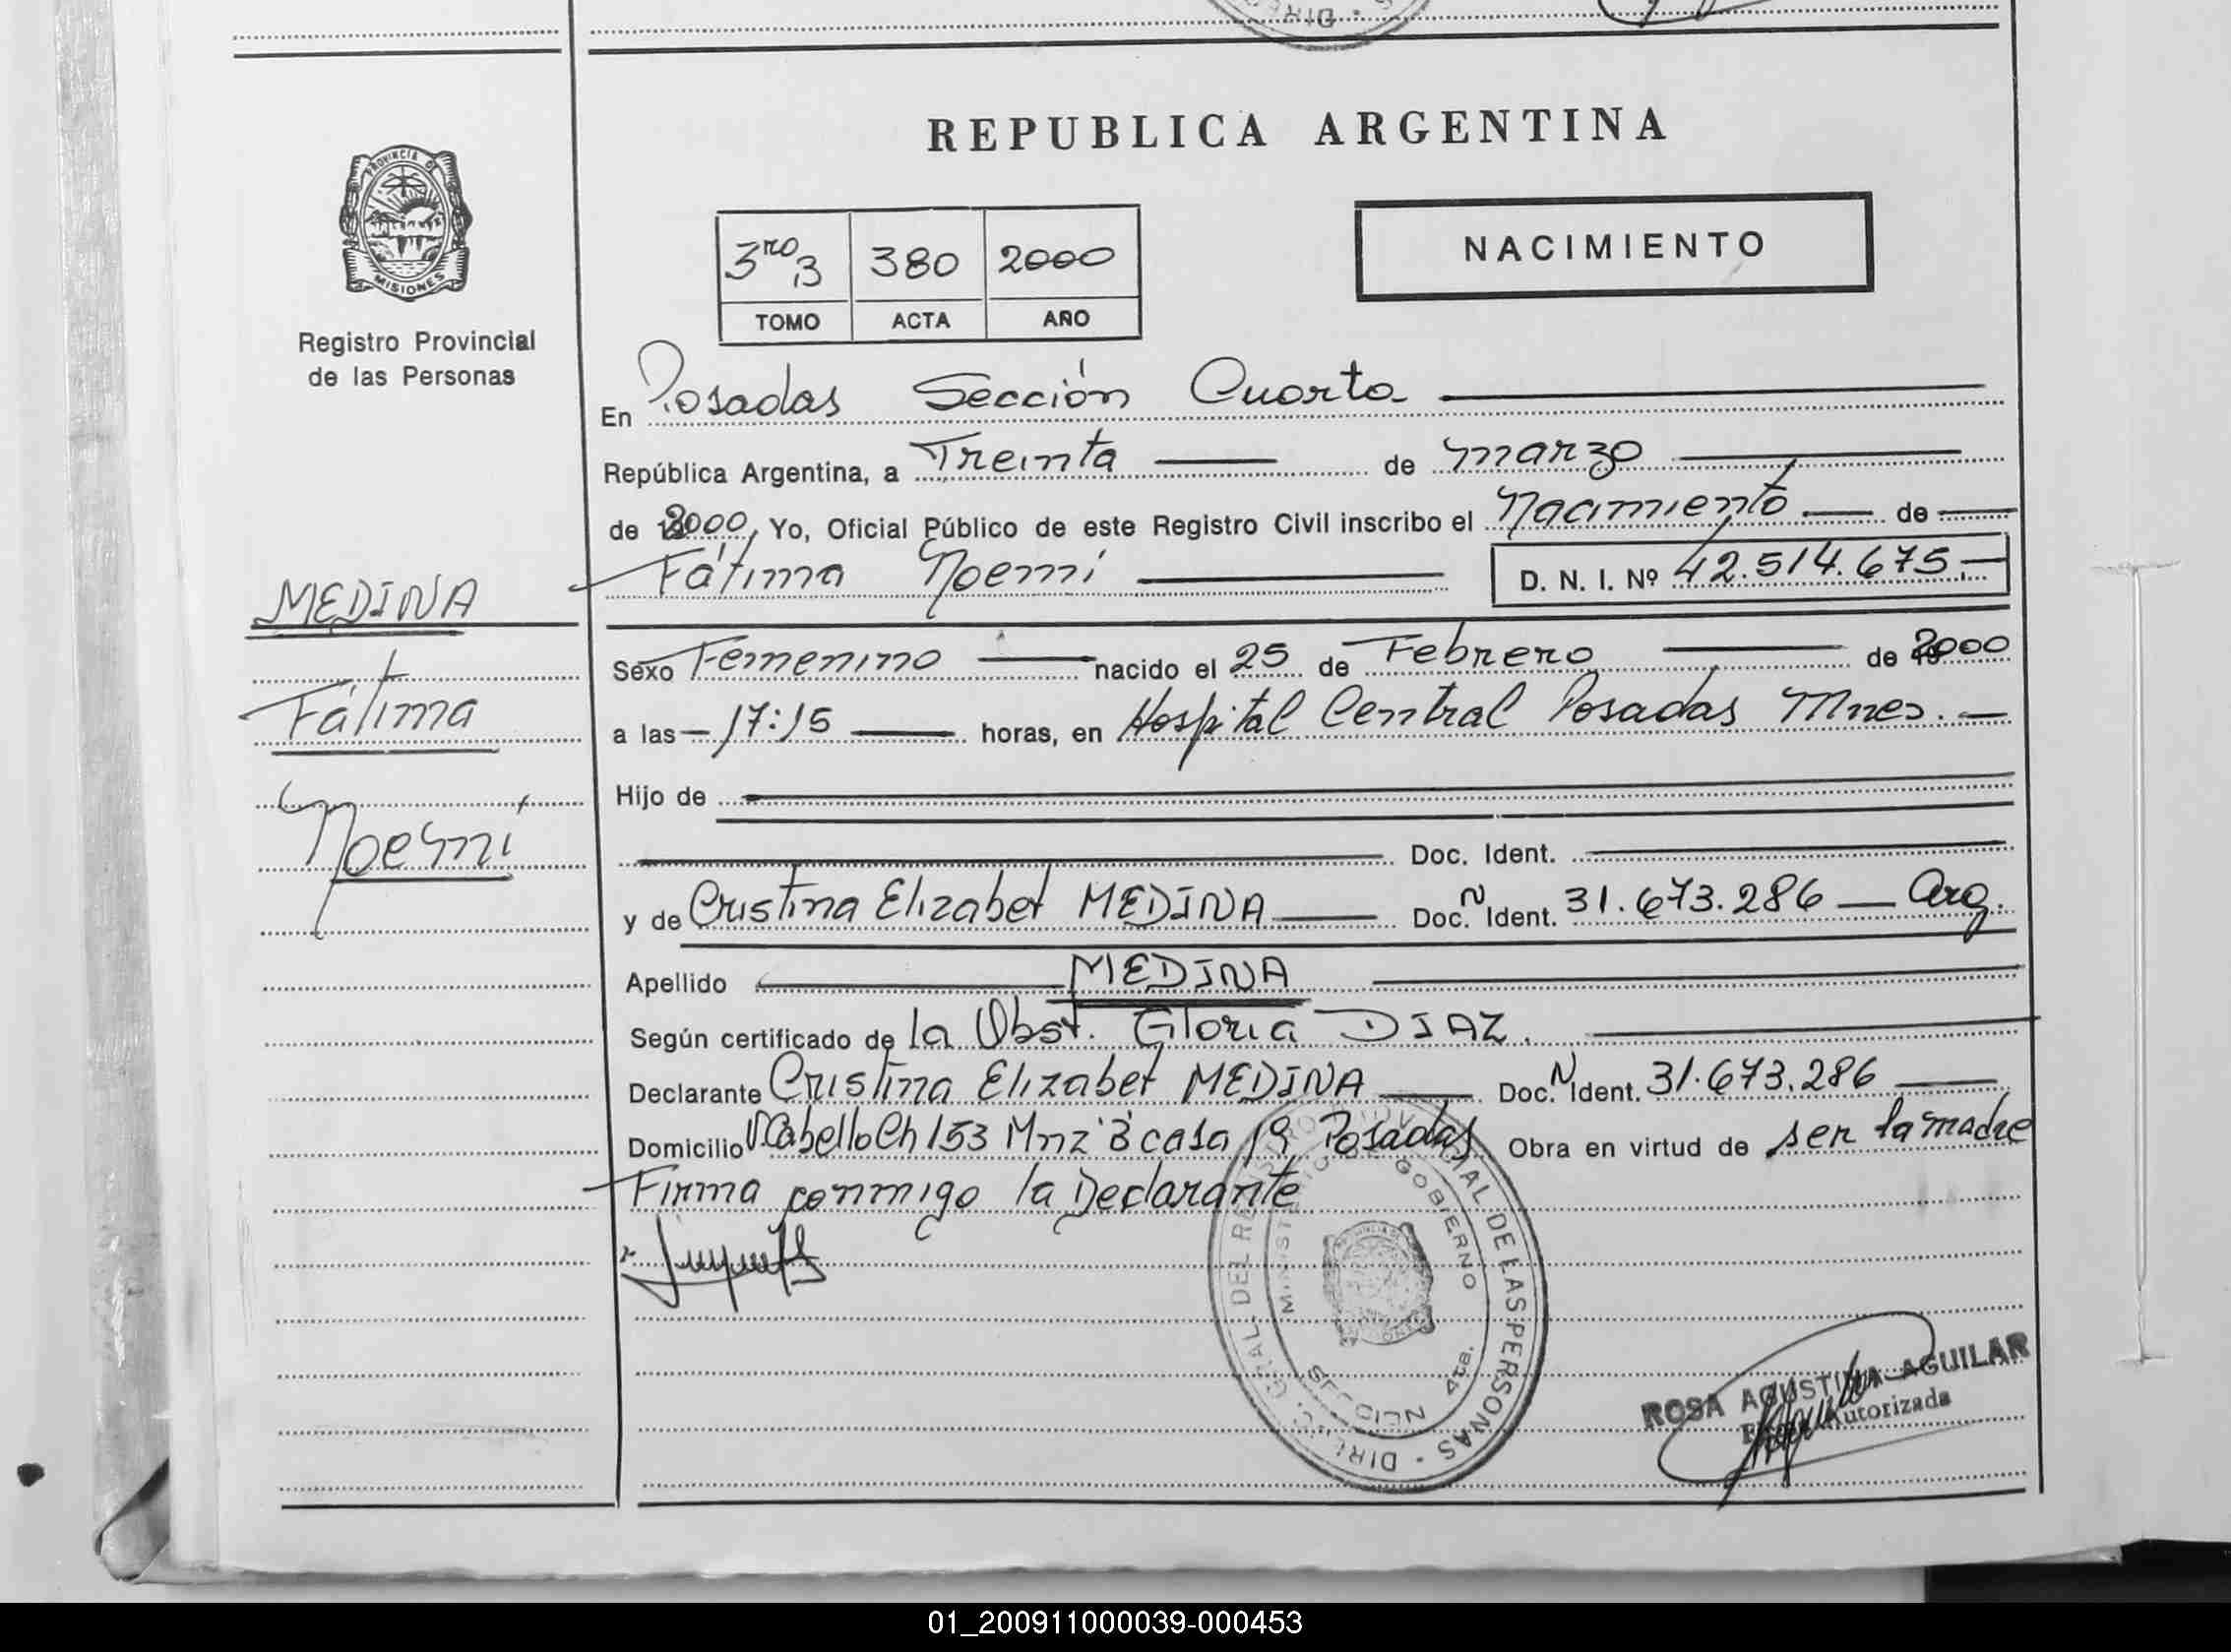 REPUBLICA ARGENTINA
PROVINCIA DE
MISIONES
Registro Provincial
de las Personas
NACIMIENTO
3ro 3 380 2000
TOMO ACTA AÑO
En Posadas Sección Cuarta
República Argentina, a Treinta de marzo
de 2000, Yo, Oficial Público de este Registro Civil inscribo el Nacimiento de
Fátima Noemí D. N. I. Nº 42.514.675.-
MEDINA
Fátima
Noemí
Sexo Femenino nacido el 25 de Febrero de 2000
a las 17:15 horas, en Hospital Central Posadas Mnes.
Hijo de
Doc. Ident.
y de Cristina Elizabet MEDINA Doc. N Ident. 31.673.286 Arg.
Apellido MEDINA
Según certificado de la Obst. Gloria DIAZ.
Declarante Cristina Elizabet MEDINA Doc. N Ident. 31.673.286
Domicilio Cabello Ch 153 Mnz "B" casa 19 Posadas Obra en virtud de ser la madre
Firma conmigo la Declarante
DIREC. GRAL. DEL REGISTRO PROVINCIAL DE LAS PERSONAS
MINISTERIO DE GOBIERNO
SECCION 4ta.
ROSA AGUSTINA AGUILAR
Firma Autorizada
01_200911000039-000453